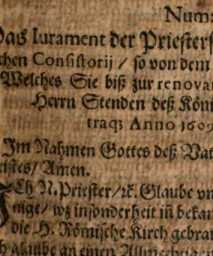 Num
Das Iurament der Priester
chen Consistorij / so von dem
Welches Sie biß zur renova
Herrn Stenden deß Kön
traq; Anno 1609
Im Nahmen Gottes deß Vat
eistes / Amen.
Ich N. Priester / ꝛc. Glaube vn
nige / wz insonderheit in bekan
die H. Römische Kirch gebrau
glaube an einen Allmechtigen